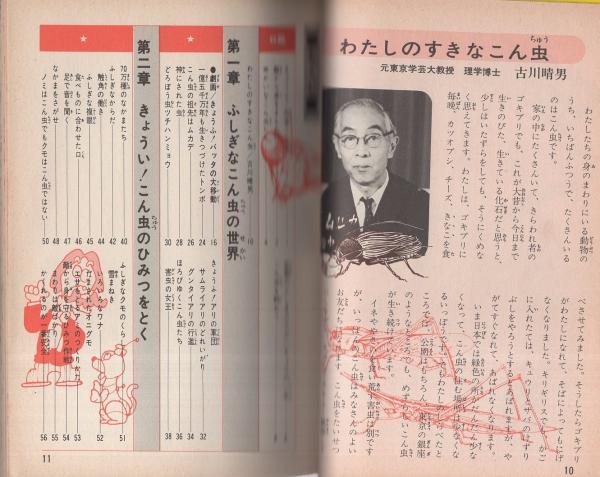 わたしのすきなこん虫
元東京学芸大教授　理学博士　古川晴男
わたしたちの身のまわりにいる動物の
うち、いちばんふつうで、たくさんいる
のはこん虫です。
家の中にたくさんいて、きらわれ者の
ゴキブリでも、これが大昔から今日まで
生きのびた、生きている化石だと思うと、
少しはいたずらをしても、そうにくめな
く思えてきます。わたしは、ゴキブリに
毎晩、カツオブシ、チーズ、きなこを食
べさせてみました。そうしたらゴキブリ
がわたしになれて、そばによってもにげ
なくなりました。キリギリスでも、かご
に入れたては、キュウリをサバのけずり
ぶしをやろうとするとあばれますが、や
がてすぐなれて、あばれなくなります。
いま日本では緑色の所がだんだん少な
くなって、こん虫の住む場所は少なくな
るいっぽうです。でもわたしのしらべたと
ころでは、公園はもちろん、東京の銀座
のようなところでも、めずらしいこん虫
が生き続けています。
イネややさいを食い荒す害虫は別です
が、いっぱんのこん虫はみなさんのよい
お友だちです。こん虫をたいせつ
10
わたしのすきなこん虫　古川晴男　10
第一章　ふしぎなこん虫の世界
●劇画／きょうふ！バッタの大移動　16
一億五千万年も生きつづけたトンボ　24
こん虫の祖先はムカデ　26
神にされた虫　28
どろぼう虫ツチハンミョウ　30
きょうふ！アリの軍団
サムライアリのどれいがり　32
グンタイアリの行進　34
ほろびゆくこん虫たち　36
害虫の女王　38
第二章　きょうい！こん虫のひみつをとく
70万種のなかまたち　40
ふしぎなからだ　42
触角の働き　44
ふしぎな複眼　45
食べものに合わせた口　46
足で音を聞く　47
なかまをさがせ　48
ノミはこん虫でもクモはこん虫ではない　50
ふしぎなクモのくらし　51
雪まねき
いろいろなワナ　52
だまされたアニグモ
エサをとるアミのつくりかた　53
敵から身を守るひみつ作戦　54
まわりは敵ばかり　55
かくれるのが一番安全　56
11